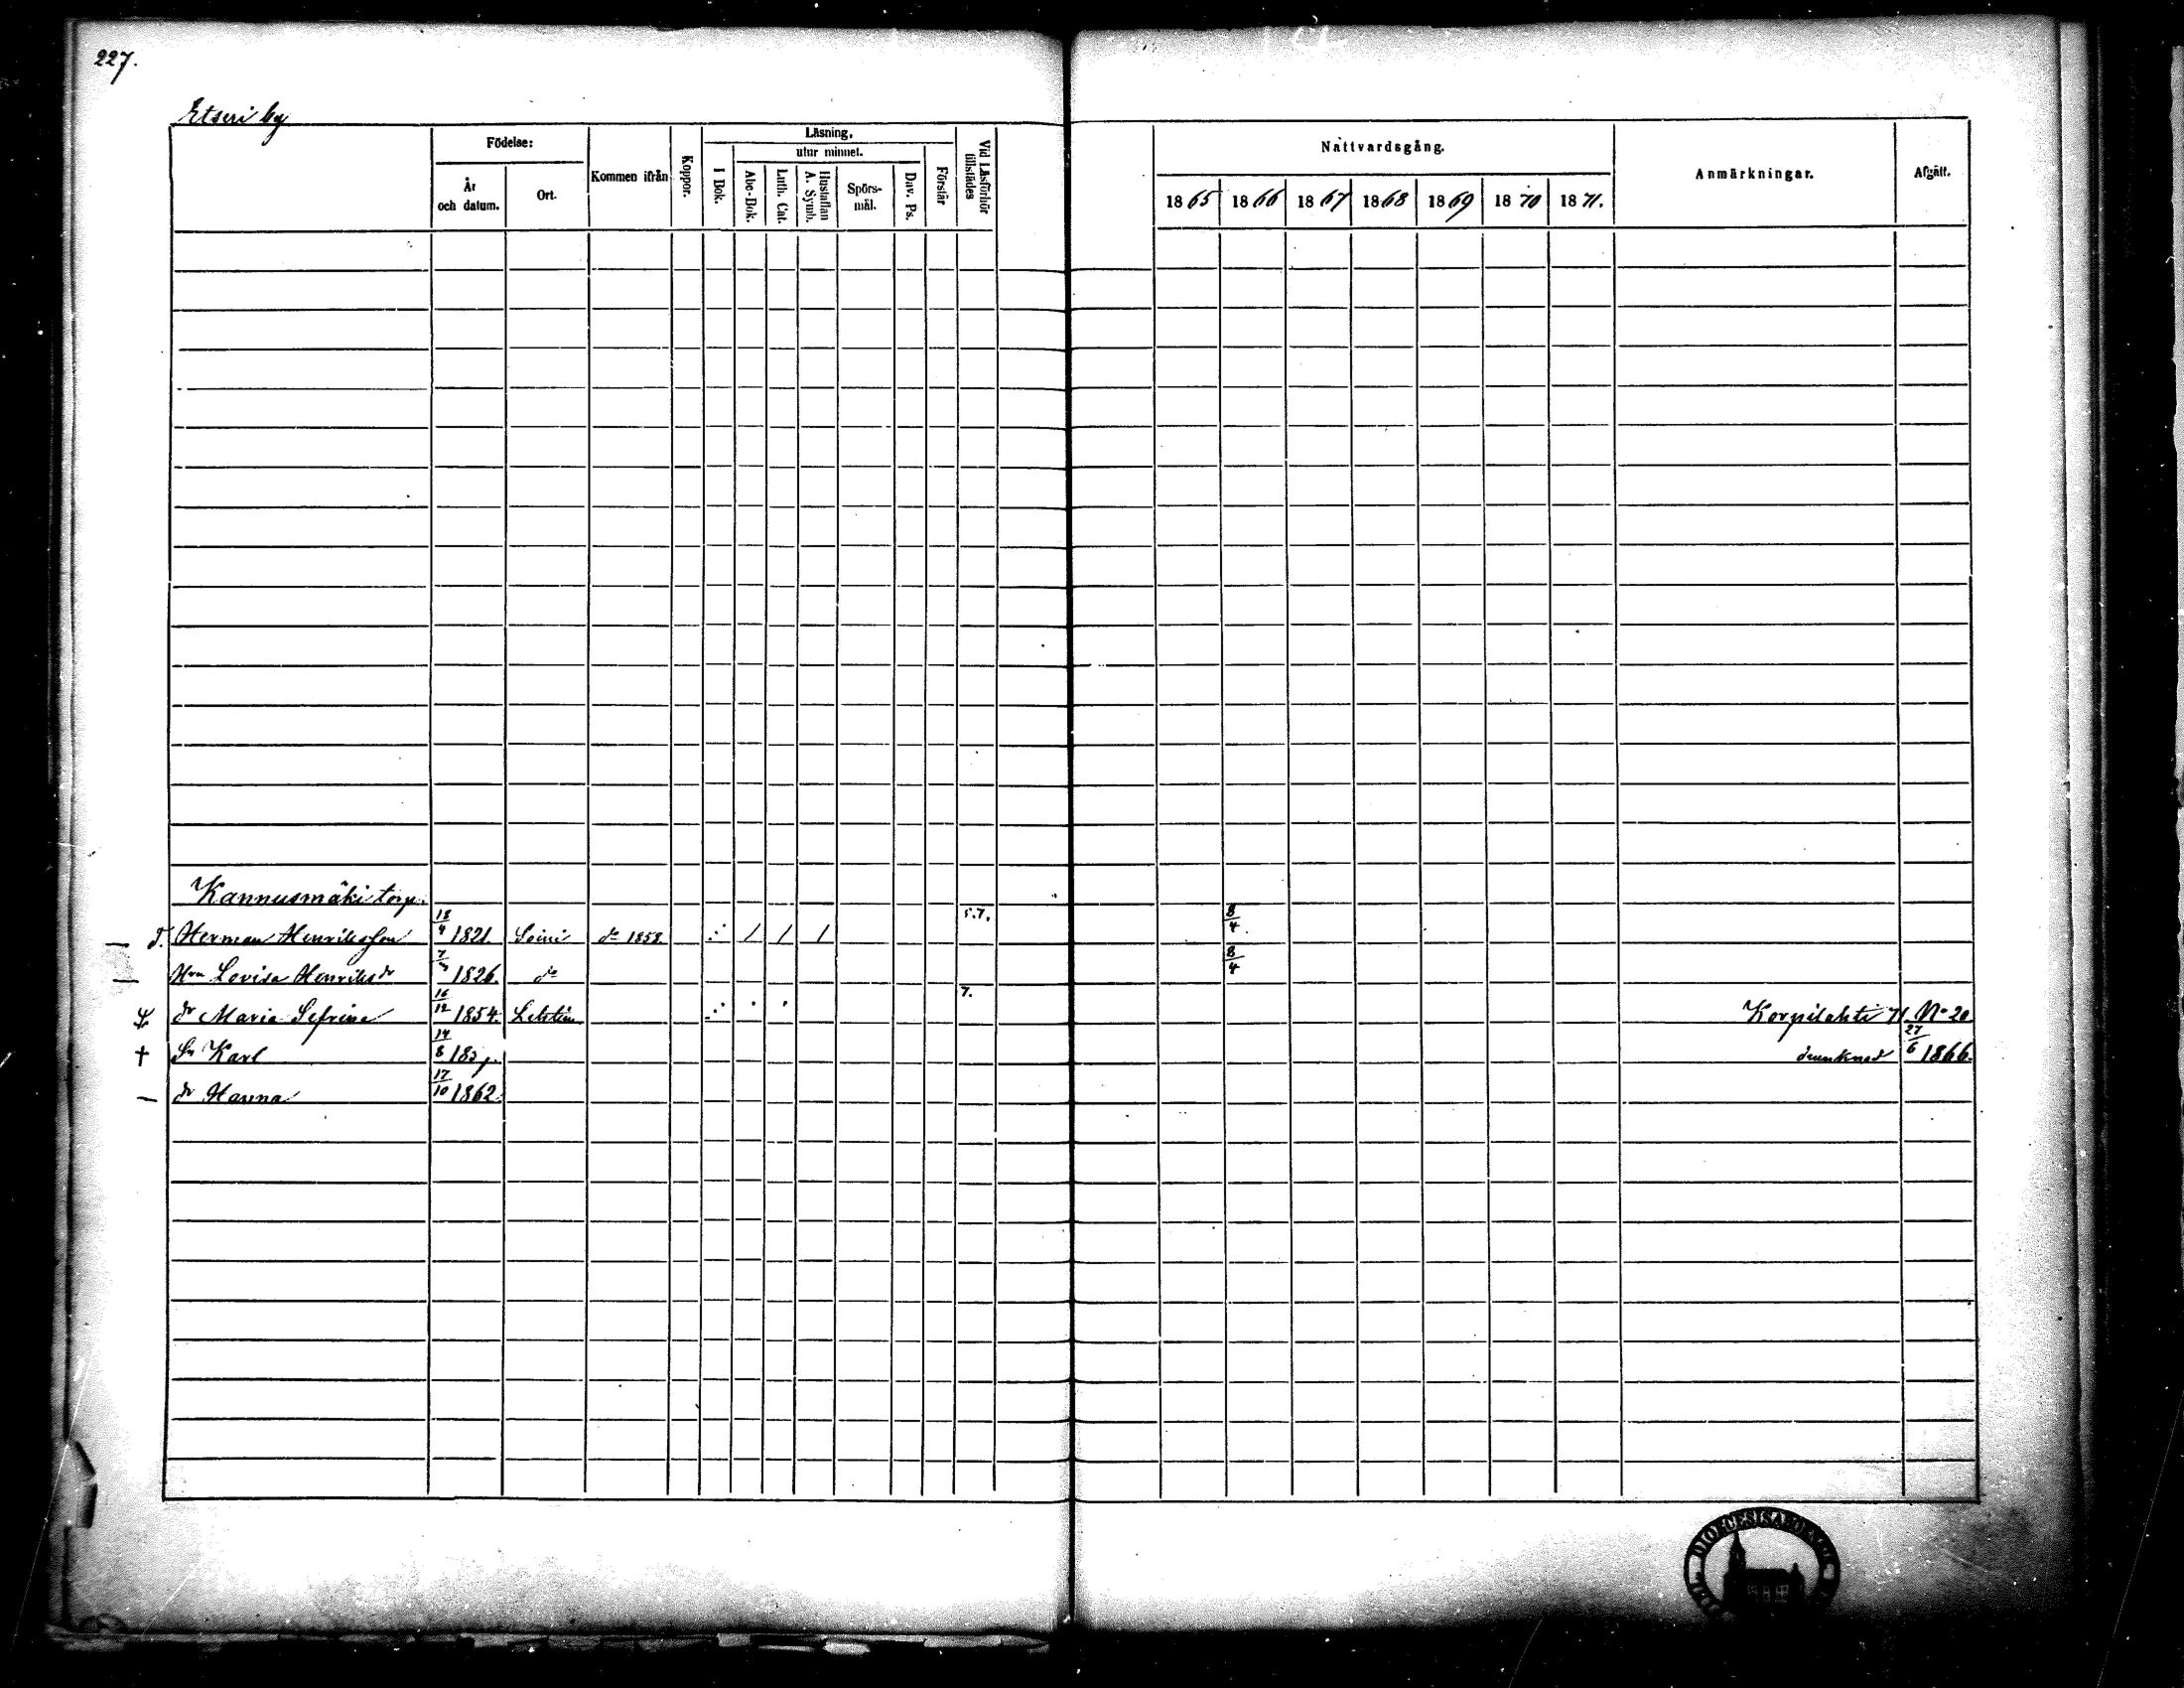 227.
Etseri by
Födelse:
År och datum.
Ort.
Kommen ifrån
Koppor.
Läsning,
I Bok.
utur minnet.
Abc-Bok.
Luth. Cat.
Hustaflan A. Symb.
Spörsmål.
Dav. Ps.
Förstår
Vid Läsförhör tillstädes
Nattvardsgång.
1865 1866 1867 1868 1869 1870 1871.
Anmärkningar.
Afgått.
Kannusmäki torp.
T. Herman Henriksson 18/4 1821. Soini do 1858. / / / 5.7. 8/4.
Hru Lovisa Henriksdr 1826. do 8/4
dr Maria Sefrina 16/12 1854. 7. Korpilahti 71. No 20
† Sn Karl 14/8 185 drunknad 27/6 1866.
dr Hanna 17/10 1862